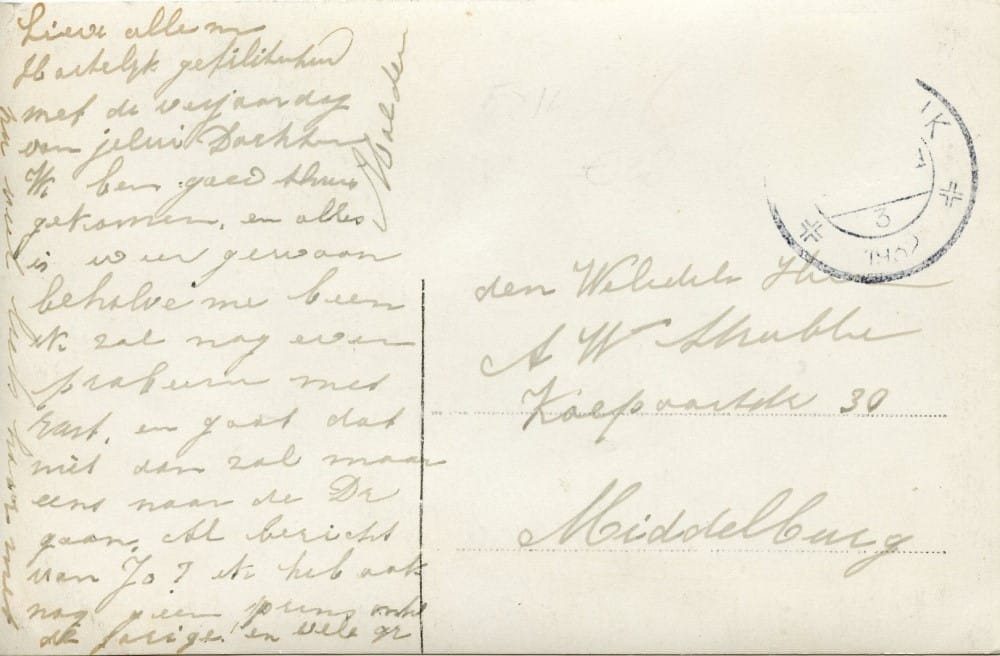 Lieve allen
Hartelijk gefiliteerd
met de verjaardag
van jelui Dochter
Ik ben goed thuis
gekomen, en alles
is weer gewoon
behalve me been
ik zal nog even
probeeren met
rust, en gaat dat
niet dan zal maar
eens naar de Dr
gaan, Al bericht
van Jo? ik heb ook
nog geen
de jarige! en vele gr
van
den Weledele Heer
A W Strubbe
Koepoortstr 30
Middelburg
IK
3